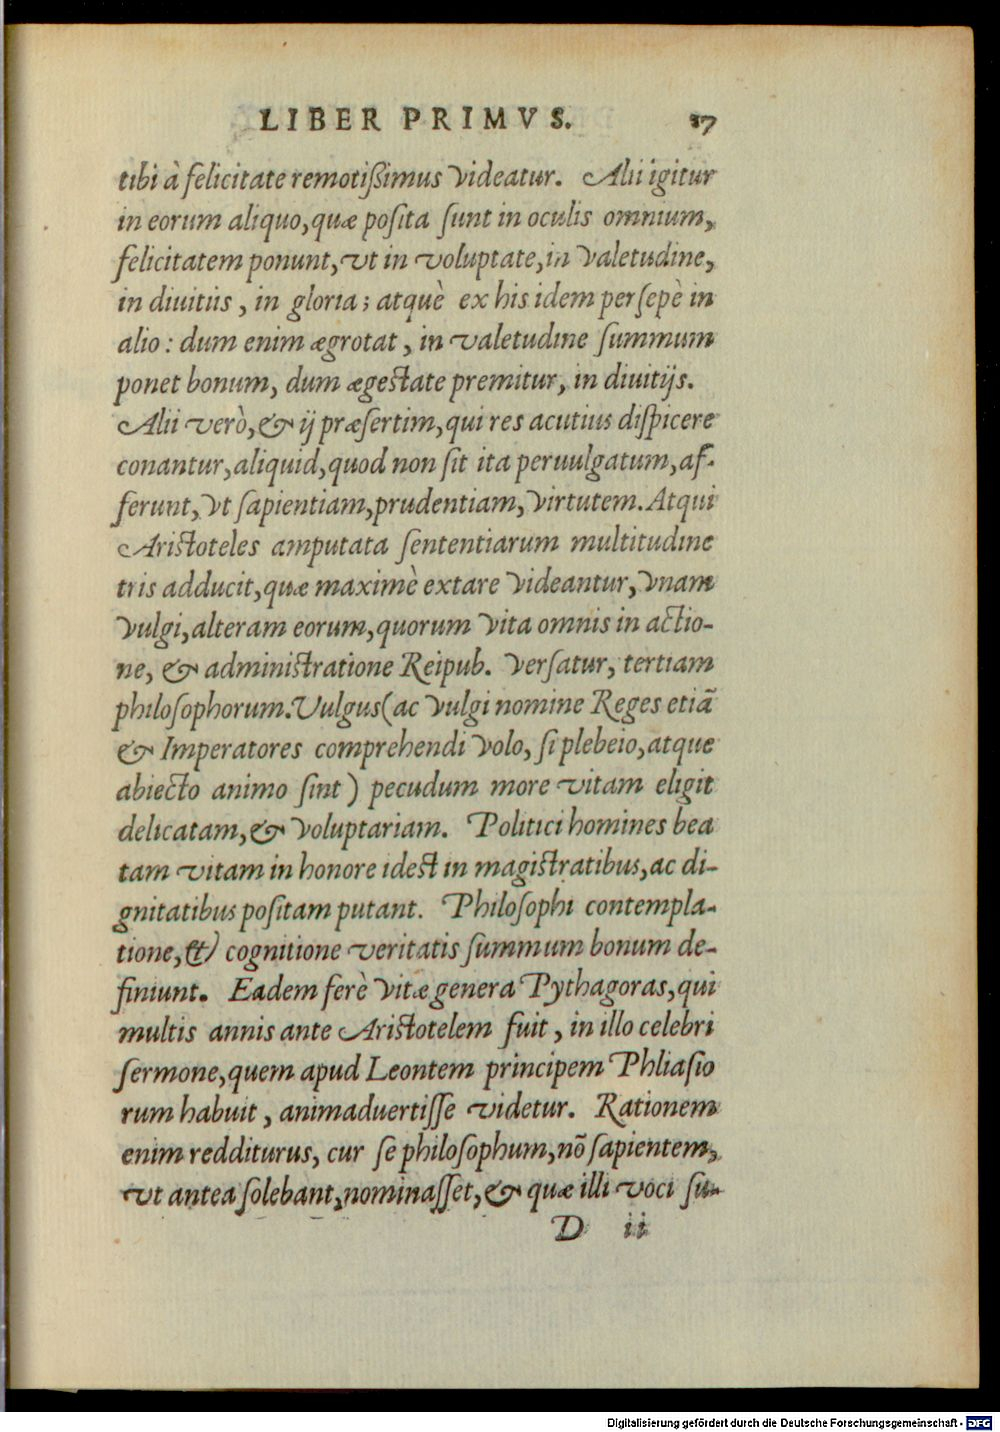 LIBER PRIMVS. 17
tibi à felicitate remotißimus videatur. Alii igitur
in eorum aliquo, quæ posita sunt in oculis omnium,
felicitatem ponunt, vt in voluptate, in valetudine,
in diuitiis, in gloria; atquè ex his idem persepè in
alio: dum enim ægrotat, in valetudine summum
ponet bonum, dum ægestate premitur, in diuitijs.
Alii verò, & ij præsertim, qui res acutius dispicere
conantur, aliquid, quod non sit ita peruulgatum, af-
ferunt, vt sapientiam, prudentiam, virtutem. Atqui
Aristoteles amputata sententiarum multitudine
tris adducit, quæ maximè extare videantur, vnam
vulgi, alteram eorum, quorum vita omnis in actio-
ne, & administratione Reipub. versatur, tertiam
philosophorum. Vulgus (ac vulgi nomine Reges etiã
& Imperatores comprehendi volo, si plebeio, atque
abiecto animo sint) pecudum more vitam eligit
delicatam, & voluptariam. Politici homines bea
tam vitam in honore idest in magistratibus, ac di-
gnitatibus positam putant. Philosophi contempla-
tione, & cognitione veritatis summum bonum de-
finiunt. Eadem ferè vitæ genera Pythagoras, qui
multis annis ante Aristotelem fuit, in illo celebri
sermone, quem apud Leontem principem Phliasio
rum habuit, animaduertisse videtur. Rationem
enim redditurus, cur se philosophum, nõ sapientem,
vt antea solebant, nominasset, & quæ illi voci su-
D ii
Digitalisierung gefördert durch die Deutsche Forschungsgemeinschaft - DFG